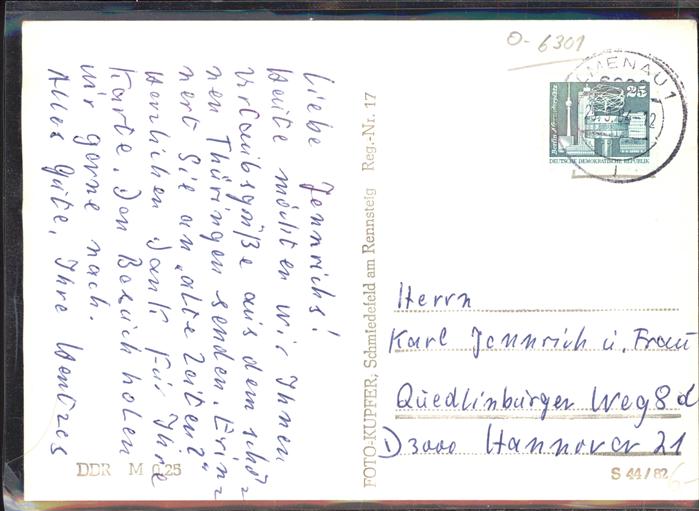 Liebe Jennrichs!
Heute möchten wir Ihnen
Urlaubsgrüße aus dem schö=
nen Thüringen senden. Erin=
nert Sie an „alte Zeiten"?
Herzlichen Dank für Ihre
Karte. Den Besuch holen
wir gerne nach.
Alles Gute, Ihre
FOTO-KUPFER, Schmiedefeld am Rennsteig Reg.-Nr. 17
DDR M 0,25
O-6301
ILMENAU 1
25
DEUTSCHE DEMOKRATISCHE REPUBLIK
Herrn
Karl Jennrich u. Frau
Quedlinburger Weg 8 d
D 3000 Hannover 21
S 44/82